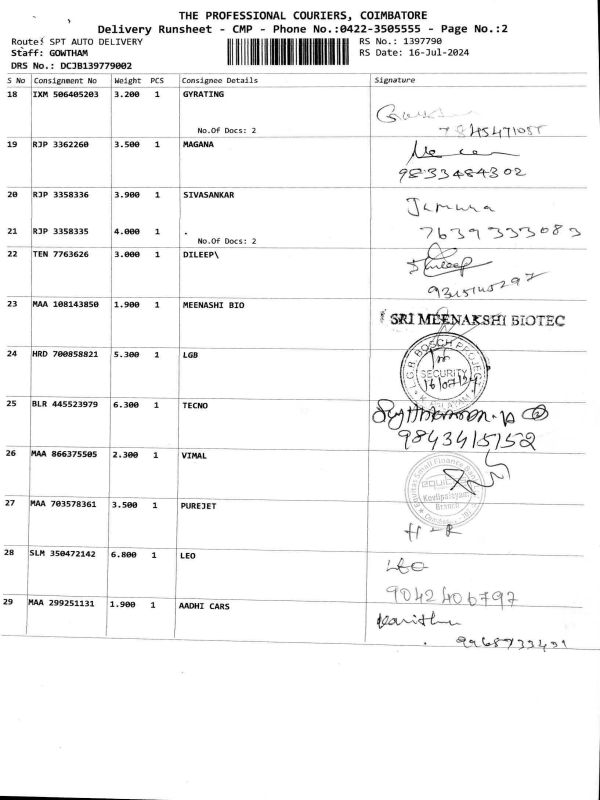 THE PROFESSIONAL COURIERS, COIMBATORE
Delivery Runsheet - CMP - Phone No.:0422-3505555 - Page No.:2
Route: SPT AUTO DELIVERY RS No.: 1397790
Staff: GOWTHAM RS Date: 16-Jul-2024
DRS No.: DCJB139779002
S No Consignment No Weight PCS Consignee Details Signature
18 IXM 506405203 3.200 1 GYRATING
No.Of Docs: 2
7845471055
19 RJP 3362260 3.500 1 MAGANA
9833484302
20 RJP 3358336 3.900 1 SIVASANKAR
21 RJP 3358335 4.000 1 .
7639333083
No.Of Docs: 2
22 TEN 7763626 3.000 1 DILEEP\
Dileep
23 MAA 108143850 1.900 1 MEENASHI BIO
SRI MEENAKSHI BIOTEC
24 HRD 700858821 5.300 1 LGB
L.G.B BOSCH PROJECT
SECURITY
16/07/24
25 BLR 445523979 6.300 1 TECNO
9843415152
26 MAA 866375505 2.300 1 VIMAL
Equitas Small Finance Bank
equitas
Kovilpalayam
Branch
27 MAA 703578361 3.500 1 PUREJET
28 SLM 350472142 6.800 1 LEO
Leo
9042406797
29 MAA 299251131 1.900 1 AADHI CARS